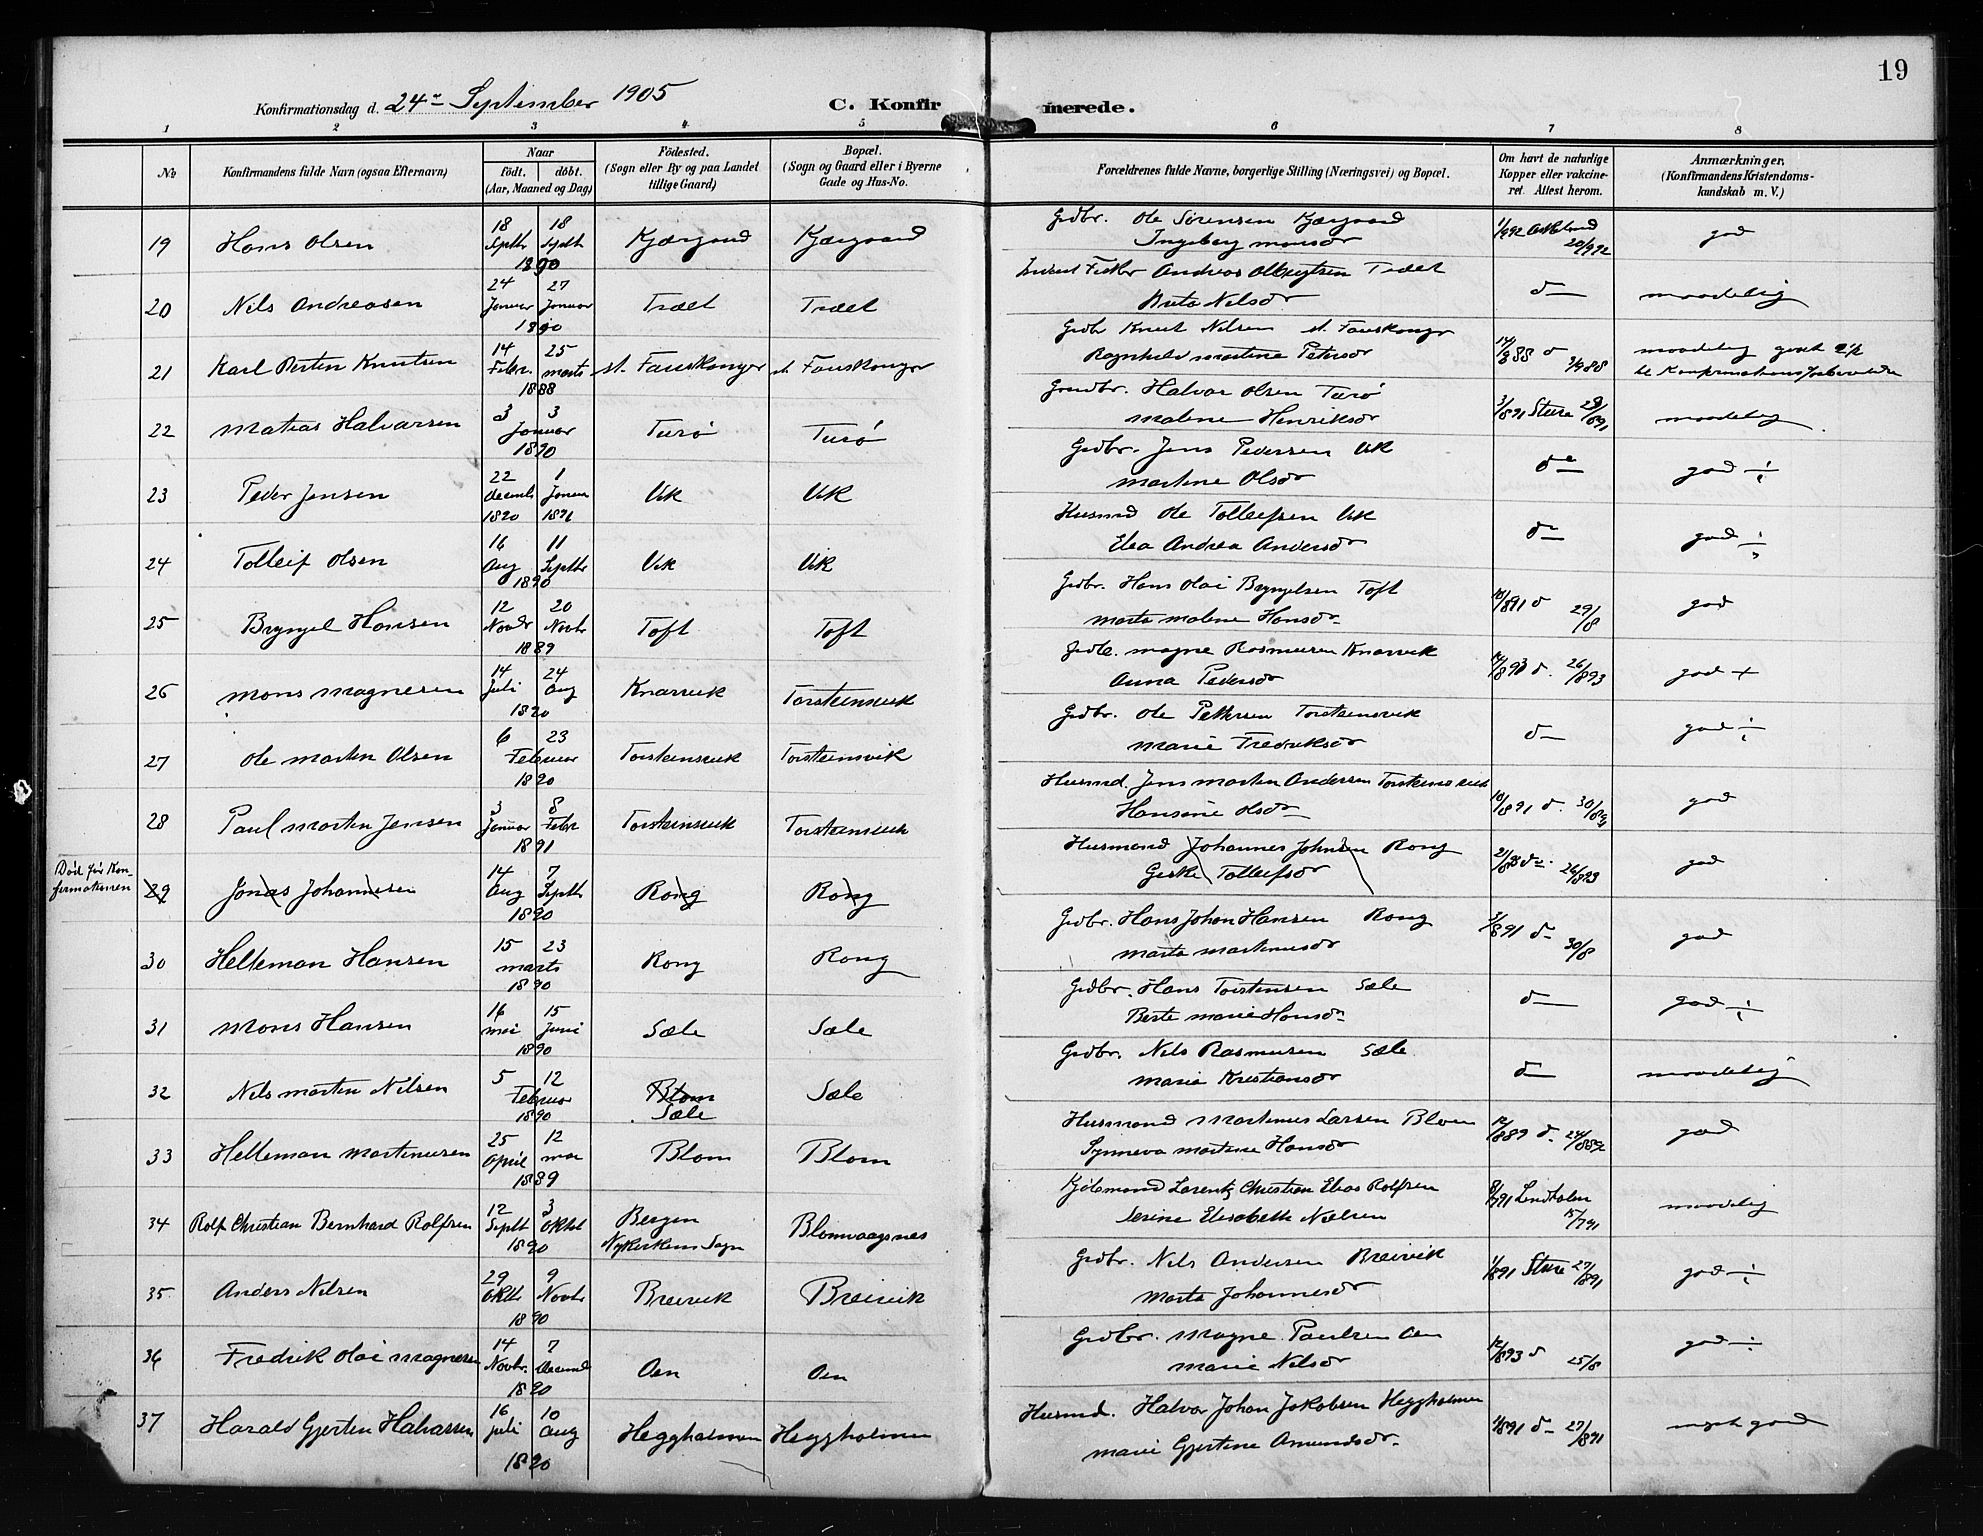 19
Konfirmationsdag d. 24de September 1905
C. Konfirmerede.
1 2 3 4 5 6 7 8
No
Konfirmandens fulde Navn (ogsaa Efternavn)
Naar
født. døbt.
(Aar, Maaned og Dag)
Fødested.
(Sogn eller By og paa Landet
tillige Gaard)
Bopæl.
(Sogn og Gaard eller i Byerne
Gade og Hus-No.
Forældrenes fulde Navne, borgerlige Stilling (Næringsvei) og Bopæl.
Om havt de naturlige
Kopper eller vakcine-
ret. Attest herom.
Anmærkninger.
(Konfirmandens Kristendoms-
kundskab m. V.)
19 Hans Olsen 18 Septbr 18 Septb 1890 Kjærgaard Kjærgaard
Grdbr. Ole Sørensen Kjærgaard
Ingeborg Monsdr 20/9 92 god
20 Nils Andreasen 24 Januar 27 Januar 1890 Træet Træet
Andreas Træet
Brita Nilsdr do maadelig
21 Karl Berten Knutsen 14 Febr. 25 Marts 1888 st. Fauskanger st. Fauskanger
Grdbr Knut Nilsen st. Fauskanger
Ragnhild Martine Petersdr maadelig
22 Matias Halvarsen 3 3 Januar 1890 Turø Turø
Grdbr. Halvar Olsen Turø
Malene Henriksdr 3/8 91 Sture maadelig
23 Peder Jensen 22 Decemb 1890 1 Januar 1891 Vik Vik
Grdbr. Jens Pedersen Vik
Martine Olsdr do god ÷
24 Tolleif Olsen 16 Aug 11 Septbr 1890 Vik Vik
Husmd Ole Tolleifsen Vik
Elea Andrea Andersdr do god ÷
25 Bryngel Hansen 12 Novbr 20 Novbr 1889 Toft Toft
Grdbr. Hans Olai Bryngelsen Toft
Marta Malene Hansdr 29/8 god
26 Mons Magnesen 14 Juli 24 Aug 1890 Knarvik Torsteinsvik
Grdbr. Magne Rasmusen Knarvik
Anna Pedersdr 26/8 93 god +
27 Ole Martin Olsen 6 23 Februar 1890 Torsteinsvik Torsteinsvik
Grdbr. Ole Pettersen Torsteinsvik
Marie Fredriksdr do god ÷
28 Paul Martin Jensen 3 Januar 8 Febr 1891 Torsteinsvik Torsteinsvik
Husmd. Jens Martin Andersen Torsteinsvik
Hansine Olsdr god
Død før Kon-
firmationen
29 Jonas Johannesen 14 Aug 7 Septbr 1890 Rong Rong
Husmand Johannes Johnsen Rong
Geske Tolleifsdr 26/8 93 god
30 Helleman Hansen 15 23 Marts 1890 Rong Rong
Grdbr. Hans Johan Hansen Rong
Marta Martinusdr 30/8 god
31 Mons Hansen 16 Mai 15 Juni 1890 Sæle Sæle
Grdbr. Hans Torstensen Sæle
Berte Marie Hansdr do god ÷
32 Nils Martin Nilsen 5 12 Februar 1890 Blom Sæle Sæle
Grdbr. Nils Rasmusen Sæle
Marie Kristiansdr do maadelig
33 Helleman Martinusen 25 April 12 Mai 1889 Blom Blom
Husmand Martinus Larsen Blom
Synneva Martine Hansdr god
34 Rolf Christian Bernhard Rolfsen 12 Septb 3 Oktbr 1890 Bergen Nykirkens Sogn Blomvaagsnes
Kjøbmand Lorentz Christian Elias Rolfsen
Serine Elisabeth Nielsen maadelig
35 Anders Nilsen 29 Oktbr 9 Novbr 1890 Breivik Breivik
Grdbr. Nils Andersen Breivik
Marta Johannesdr Sture 27/8 91 god ÷
36 Fredrik Olai Magnesen 14 Novbr. 7 Decemb 1890 Oen Oen
Grdbr. Magne Paulsen Oen
Marie Nilsdr 25/8 god ÷
37 Harald Gjertin Halvarsen 16 Juli 10 Aug 1890 Heggholmen Heggholmen
Husmd. Halvor Johan Jakobsen Heggholmen
Marie Gjertine Amundsdr. 27/8 91 meget god